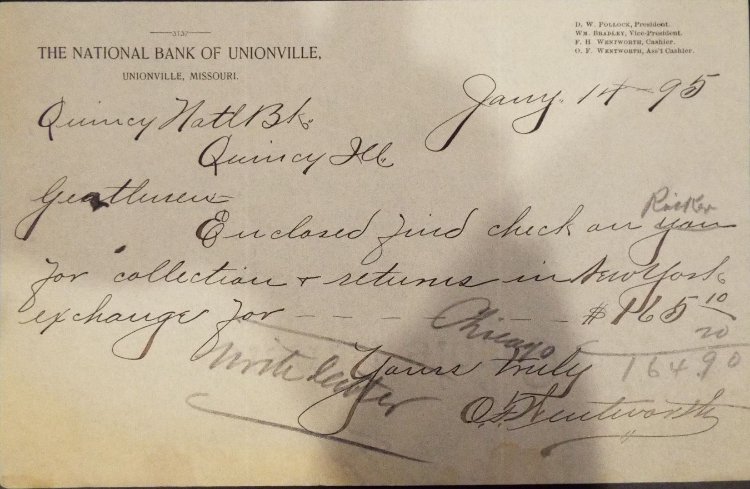 3137
THE NATIONAL BANK OF UNIONVILLE,
UNIONVILLE, MISSOURI.
D. W. POLLOCK, President.
WM. BRADLEY, Vice-President.
F. H. WENTWORTH, Cashier.
O. F. WENTWORTH, Ass't Cashier.
Jany. 14-95
Quincy Natl Bk.
Quincy Ill.
Gentlemen
Ricker
Enclosed find check on you
for collection + returns in New York
exchange for - - - - - - $165 10
Chicago
20
164.90
Write Letter
Yours truly
O. F. Wentworth